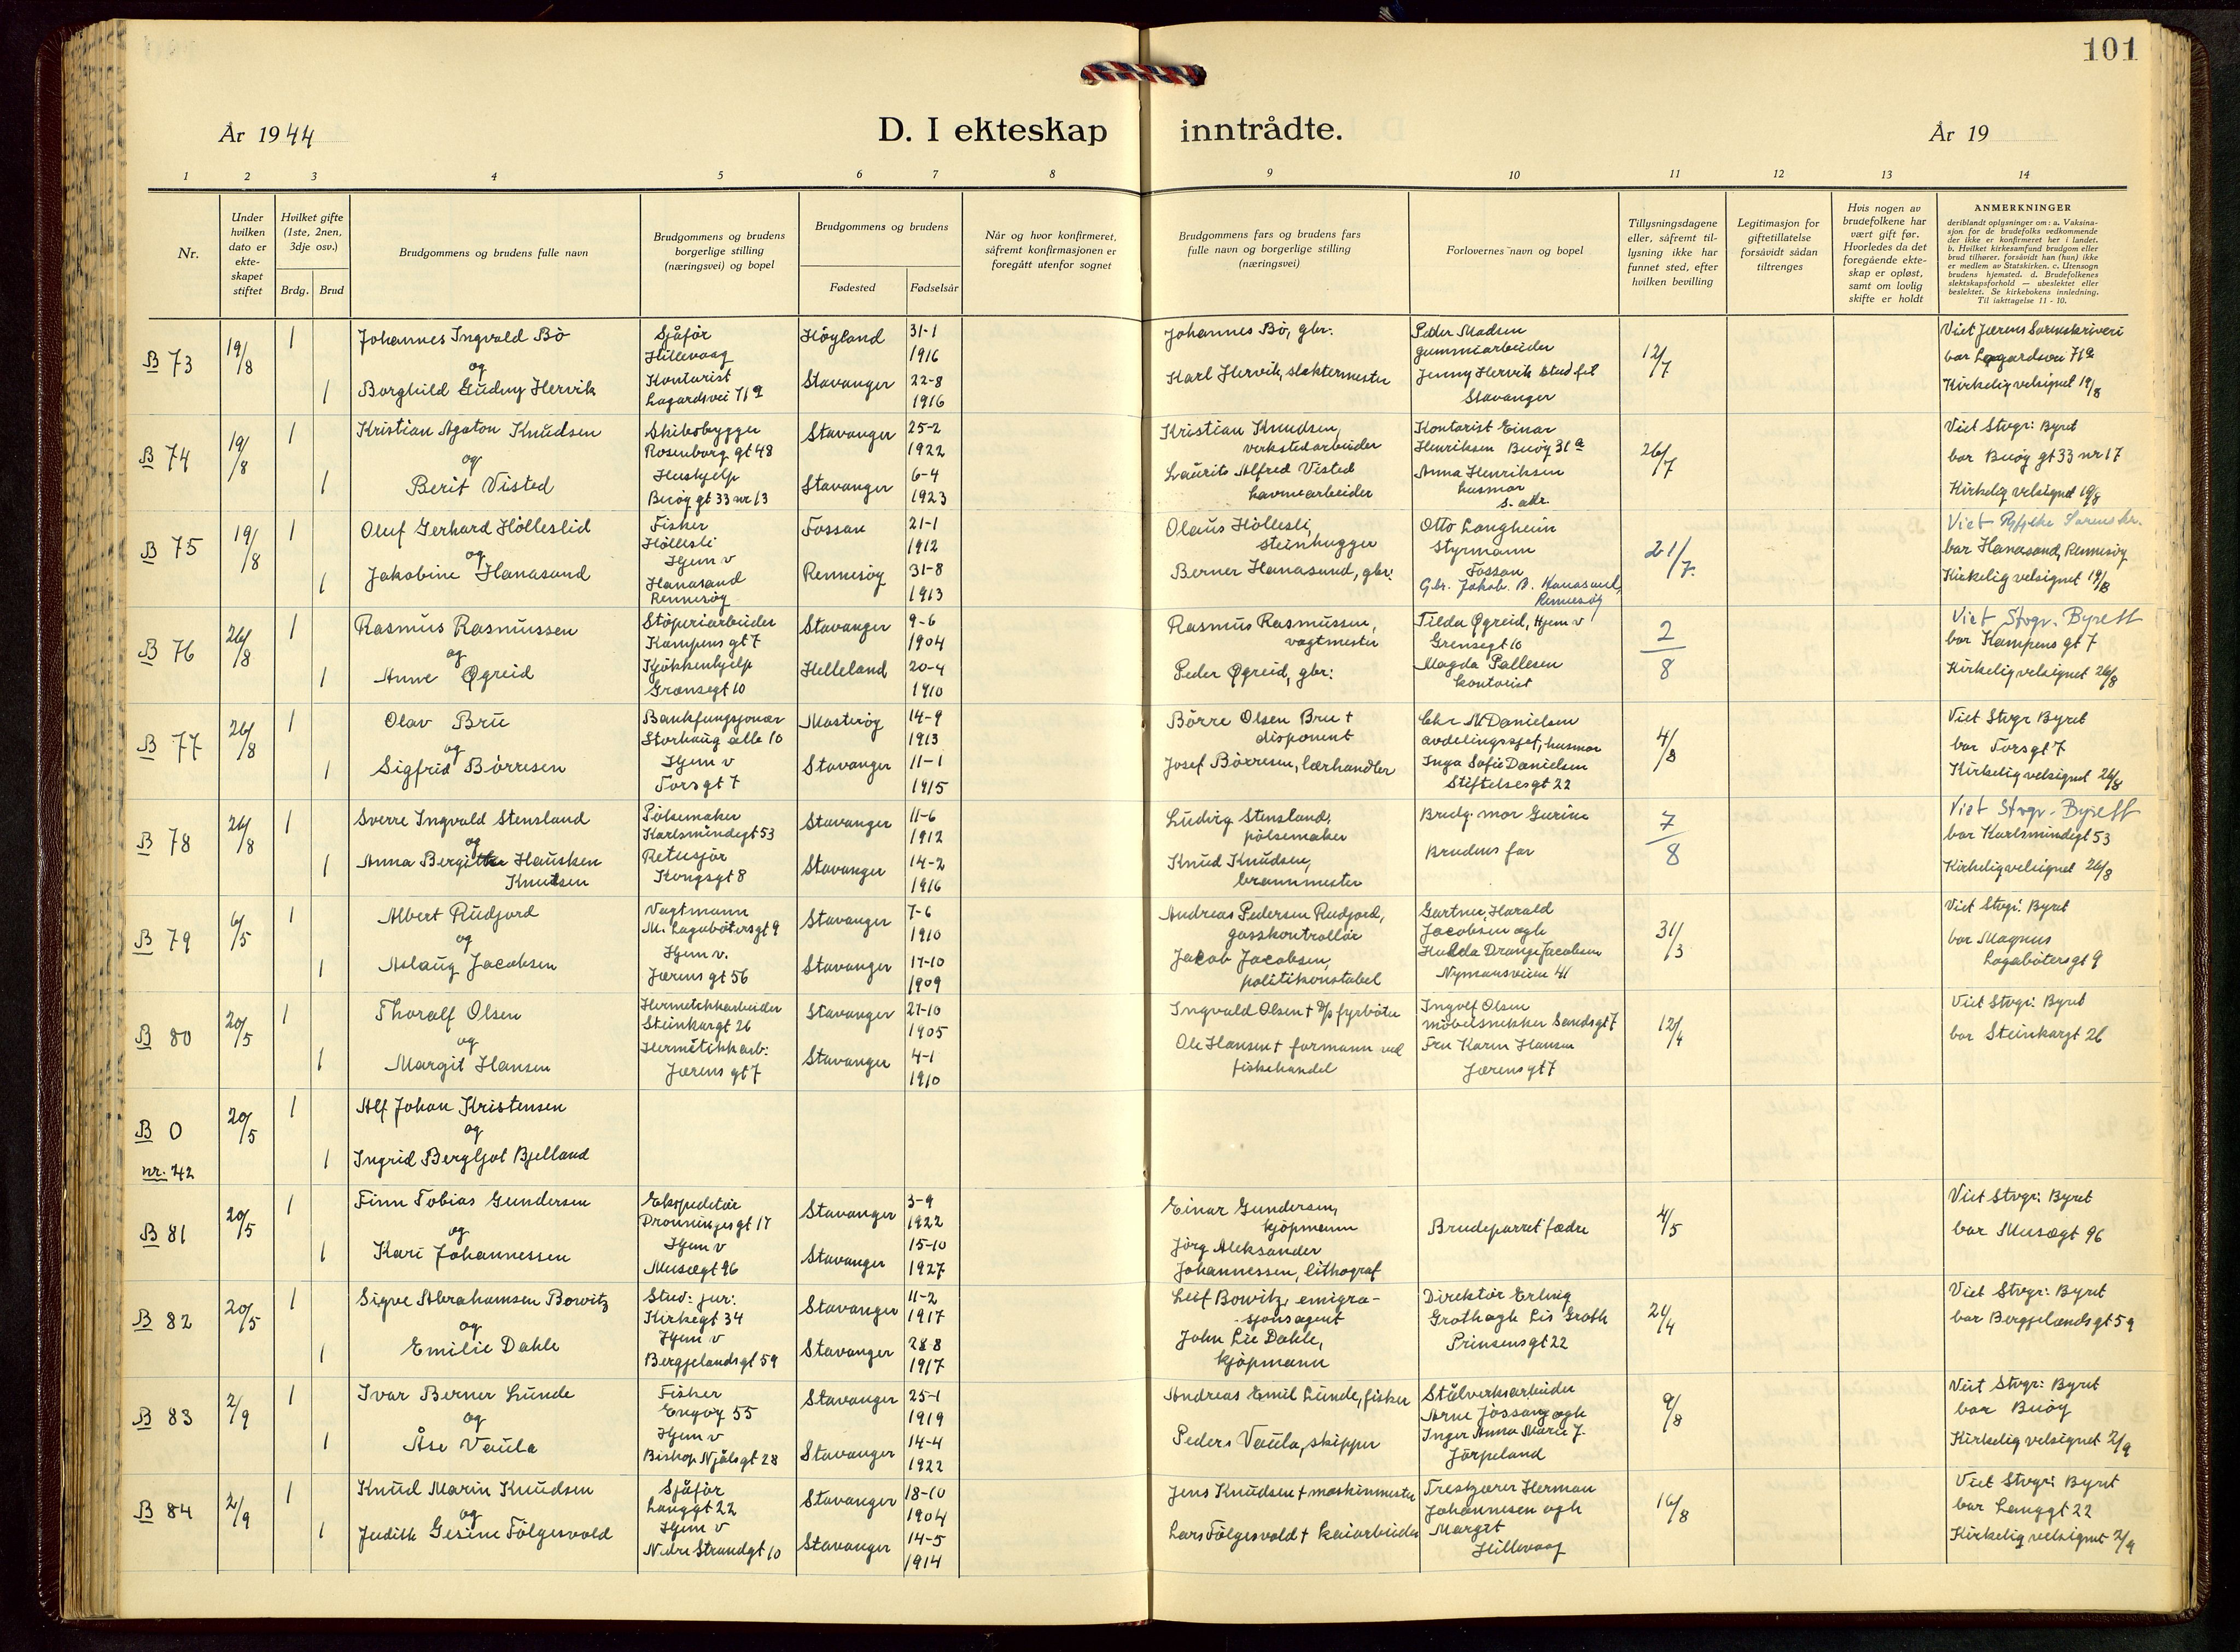 101
År 1944
D. I ekteskap inntrådte.
År 19
1 2 3 4 5 6 7 8 9 10 11 12 13 14
Nr.
Under hvilken dato er ekte-skapet stiftet
Hvilket gifte (1ste, 2nen, 3dje osv.)
Brdg. Brud
Brudgommens og brudens fulle navn
Brudgommens og brudens borgerlige stilling (næringsvei) og bopel
Brudgommens og brudens
Fødested Fødselsår
Når og hvor konfirmeret, såfremt konfirmasjonen er foregått utenfor sognet
Brudgommens fars og brudens fars fulle navn og borgerlige stilling (næringsvei)
Forlovernes navn og bopel
Tillysningsdagene eller, såfremt til-lysning ikke har funnet sted, efter hvilken bevilling
Legitimasjon for giftetillatelse forsåvidt sådan tiltrenges
Hvis nogen av brudefolkene har vært gift før. Hvorledes da det foregående ekte-skap er opløst, samt om lovlig skifte er holdt
ANMERKNINGER
deriblandt oplysninger om: a. Vaksina-sjon for de brudefolks vedkommende der ikke er konfirmeret her i landet. b. Hvilket kirkesamfund brudgom eller brud tilhører, forsåvidt han (hun) ikke er medlem av Statskirken. c. Utensogn brudens hjemsted. d. Brudefolkenes slektskapsforhold — ubeslektet eller beslektet. Se kirkebokens innledning. Til iakttagelse 11 - 10.
B 73
19/8
1
Johannes Ingvald Bö
og
1
Borghild Gudny Hervik
Sjåför
Hillevaag
Kontorist
Lagardsvei 71a
Höyland
31-1
1916
Stavanger
22-8
1916
Johannes Bö, gbr.
Karl Hervik, slaktermester
Peder Madsen
gummiarbeider
Jenny Hervik stud fil
Stavanger
12/7
Viet Jærens Sorenskriveri
bor Lagardsvei 71a
Kirkelig velsignet 19/8
B 74
19/8
1
Kristian Agaton Knudsen
og
1
Berit Visted
Skibsbygger
Rosenborg gt 48
Hushjelp
Buöy gt 33 nr 13
Stavanger
25-2
1922
Stavanger
6-4
1923
Kristian Knudsen,
verkstedarbeider
Laurits Alfred Visted
havnearbeider
Kontorist Einar
Henriksen Buöy 31a
Anna Henriksen
husmor
s. adr.
26/7
Viet Stvgr: Byret
bor Buöy gt 33 nr 17
Kirkelig velsignet 19/8
B 75
19/8
1
Oluf Gerhard Hölleslid
og
1
Jakobine Hanasand
Fisker
Höllesli
Hjem v
Hanasand
Rennesöy
Fossan
21-1
1912
Rennesöy
31-8
1913
Olaus Höllesli,
steinhugger
Berner Hanasand, gbr.
Otto Langheim
Styrmann
Fossan
Gbr. Jakob B. Hanasand,
Rennesöy
21/7.
Viet Ryfylke Sorenskr.
bor Hanasand, Rennesöy
Kirkelig velsignet 19/8
B 76
26/8
1
Rasmus Rasmussen
og
1
Anne Øgreid
Stöperiarbeider
Kampens gt 7
Kjökkenhjelp
Grensegt 10
Stavanger
9-6
1904
Helleland
20-4
1910
Rasmus Rasmussen,
vagtmester
Peder Øgreid, gbr:
Tilda Øgreid, Hjem v
Grensegt 10
Magda Pallesen
kontorist
2/8
Viet Stvgr. Byrett
bor Kampens gt 7
Kirkelig velsignet 26/8
B 77
26/8
1
Olav Bru
og
1
Sigfrid Börresen
Bankfungsjonær
Storhaug alle 10
Hjem v
Torsgt 7
Mosteröy
14-9
1913
Stavanger
11-1
1915
Börre Olsen Bru †
disponent
Josef Börresen, lærhandler
Chr M Danielsen
avdelingssjef, husmor
Inga Sofie Danielsen
Stiftelsesgt 22
4/8
Viet Stvgr Byret
bor Torsgt 7
Kirkelig velsignet 26/8
B 78
26/8
1
Sverre Ingvald Stensland
og
1
Anna Bergitte Hausken
Knutsen
Pölsemaker
Karlsmindegt 53
Retusjör
Kongsgt 8
Stavanger
11-6
1912
Stavanger
14-2
1916
Ludvig Stensland,
pölsemaker
Knud Knudsen,
brannmester
Brudg. mor Gurine
Brudens far
7/8
Viet Stvgr. Byrett
bor Karlsmindegt 53
Kirkelig velsignet 26/8
B 79
6/5
1
Albert Rudjord
og
1
Aslaug Jacobsen
Vagtmann
M. Lagabötersgt 9
Hjem v.
Jærens gt 56
Stavanger
7-6
1910
Stavanger
17-10
1909
Andreas Pedersen Rudjord,
gasskontrollör
Jacob Jacobsen,
politikonstabel
Gartner, Harald
Jacobsen ogh
Hulda Drange Jacobsen
Nymansveien 41
31/3
Viet Stvgr: Byret
bor Magnus
Lagabötersgt 9
B 80
20/5
1
Thoralf Olsen
og
1
Margit Hansen
Hermetikkarbeider
Steinkargt 26
Hermetikkarb:
Jærens gt 7
Stavanger
27-10
1905
Stavanger
4-1
1910
Ingvald Olsen † D/s fyrböter
Ole Hansen † formann ved
fiskehandel
Ingolf Olsen
möbelsnekker Sandsgt 7
Fru Karen Hansen
Jærensgt 7
12/4
Viet Stvgr: Byret
bor Steinkargt 26
B 0
nr: 42
20/5
1
Alf Johan Kristensen
og
1
Ingrid Bergljot Bjelland
B 81
20/5
1
Finn Tobias Gundersen
og
1
Kari Johannessen
Ekspeditör
Dronningensgt 17
Hjem v
Musegt 96
Stavanger
3-9
1922
Stavanger
15-10
1927
Einar Gundersen,
kjöpmann
Jörg Aleksander
Johannessen, lithograf
Brudeparret fædre
4/5
Viet Stvgr: Byret
bor Musegt 96
B 82
20/5
1
Sigve Abrahamsen Bowitz
og
1
Emilie Dahle
Stud: jur:
Kirkegt 34
Hjem v
Bergjelandsgt 59
Stavanger
11-2
1917
Stavanger
28-8
1917
Leif Bowitz, emigra-
sjonsagent
John Lie Dahle,
kjöpmann
Direktör Erling
Groth ogh Lis Groth
Prinsensgt 22
21/4
Viet Stvgr: Byret
bor Bergjelandsgt 59
B 83
2/9
1
Ivar Berner Lunde
og
1
Åse Vaula
Fisker
Engöy 55
Hjem v
Biskop Njålsgt 28
Stavanger
25-1
1919
Stavanger
14-4
1922
Andreas Emil Lunde, fisker
Peder Vaula, skipper
Stålverksarbeider
Arne Jössang ogh
Inger Anna Marie J.
Jörpeland
9/8
Viet Stvgr: Byret
bor Buöy
Kirkelig velsignet 2/9
B 84
2/9
1
Knud Marin Knudsen
og
1
Judith Gesine Fölgesvold
Sjåför
Langgt 22
Hjem v
Nedre Strandgt 10
Stavanger
18-10
1904
Stavanger
14-5
1914
Jens Knudsen † maskinmester
Lars Fölgesvold † kaiarbeider
Treskjærer Herman
Johannesen ogh
Margit
Hillevaag
16/8
Viet Stvgr: Byret
bor Langgt 22
Kirkelig velsignet 2/9